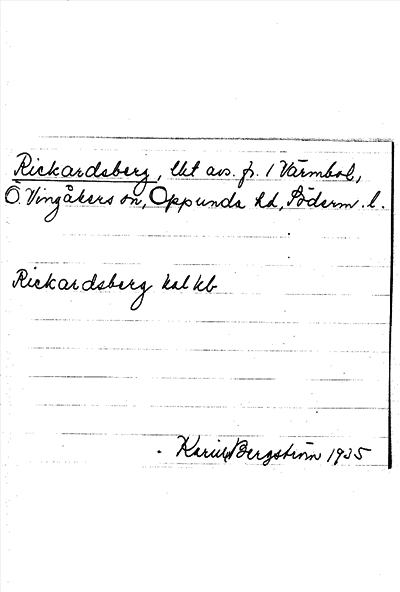 Rickardsberg, lht avs. fr. 1 Värmbol,
Ö. Vingåkers sn, Oppunda hd, Söderm. l.
Rickardsberg kal kb
Karin Bergström 1935